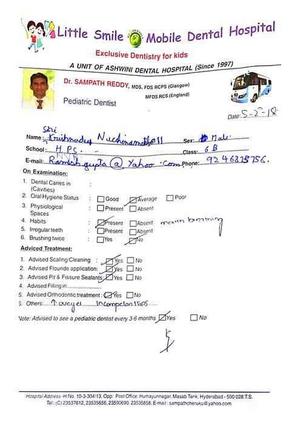 Little Smile Mobile Dental Hospital
Exclusive Dentistry for kids
A UNIT OF ASHWINI DENTAL HOSPITAL (Since 1997)
Dr. SAMPATH REDDY, MDS, FDS RCPS (Glasgow)
MFDS RCS (England)
Pediatric Dentist
Date: 5-2-18
Sri
Name: Sex: Male
School: H.P.S. Class: 6 B
E-mail: Rameshgupta@Yahoo.com Phone:
On Examination:
1. Dental Caries in
(Cavities)
2. Oral Hygiene Status : Good Average Poor
3. Physiological : Present Absent
Spaces
4. Habits : Present Absent
5. Irregular teeth : Present Absent
6. Brushing twice : Yes No
Adviced Treatment:
1. Advised Scaling Cleaning : Yes No
2. Advised Flouride application: Yes No
3. Advised Pit & Fissure Sealants: Yes No
4. Advised Filling in
5. Advised Orthodontic treatment : Yes No
6. Others:
Note: Advised to see a pediatric dentist every 3-6 months Yes No
Hospital Address -H.No. 10-3-304/13, Opp: Post Office, Humayunnagar, Masab Tank, Hyderabad - 500 028.T.S.